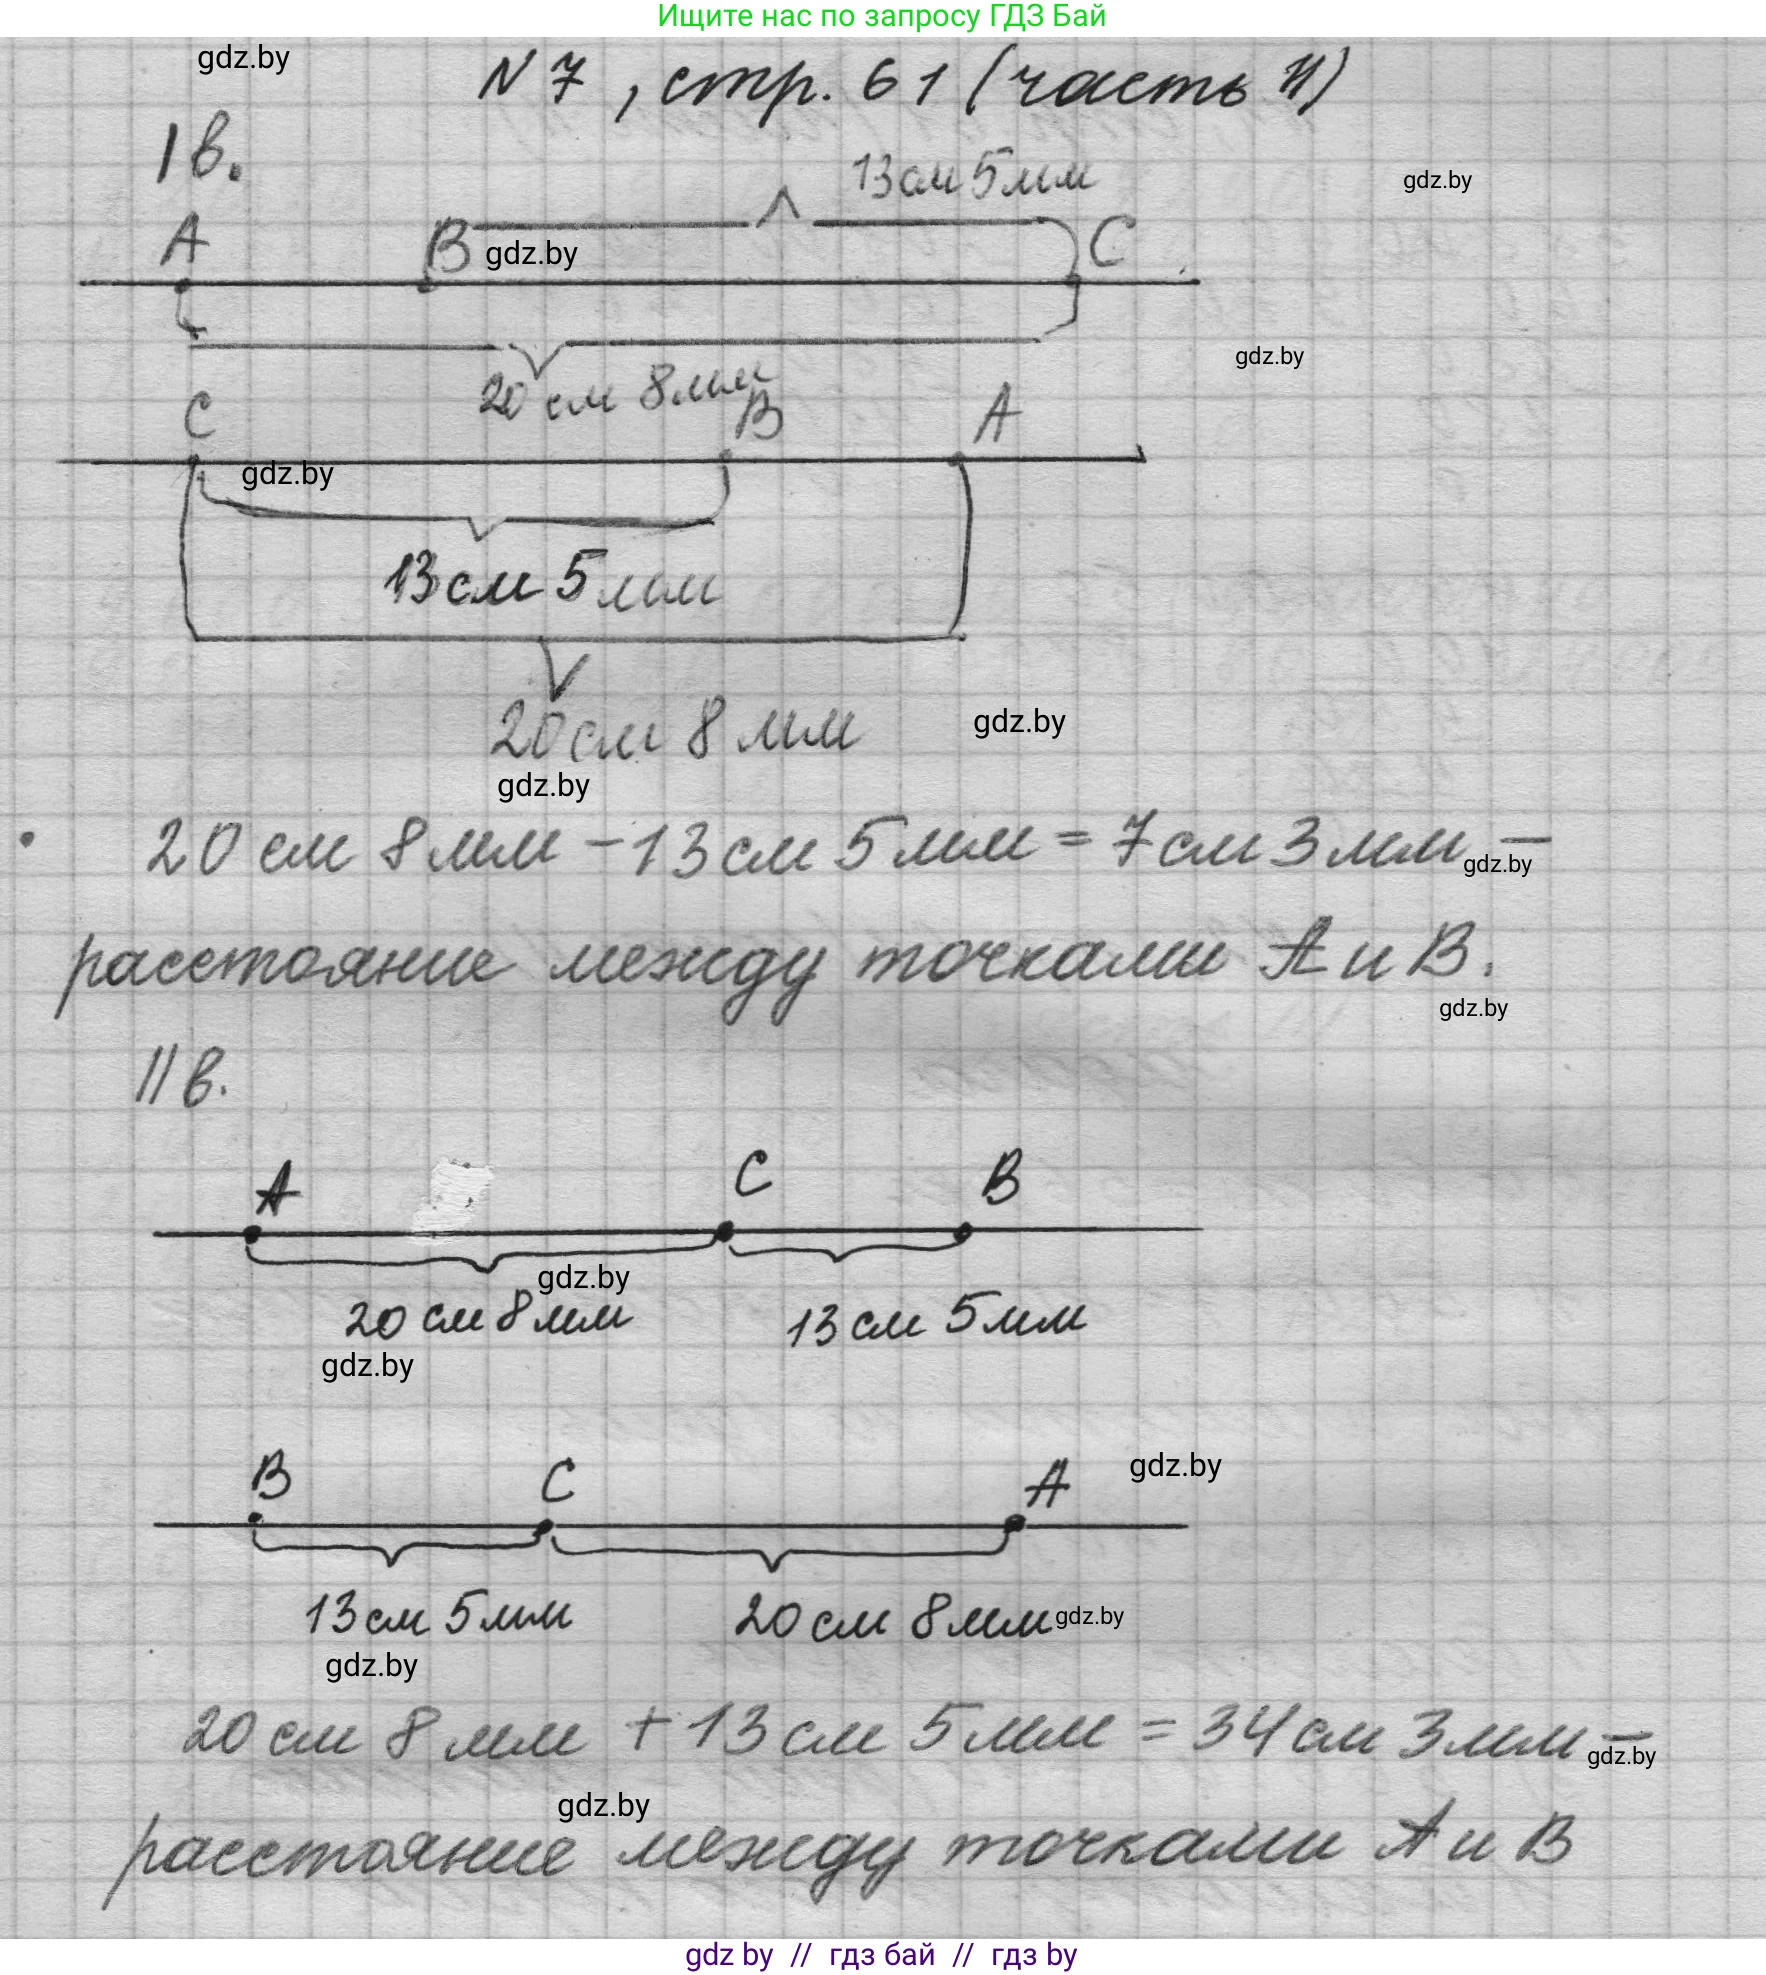 Ищите нас по запросу ГДЗ Бай
gdz.by
N 7, стр. 61 (часть II)
I в.
13 см 5 мм
gdz.by
A B C
gdz.by
gdz.by
20 см 8 мм
C B A
gdz.by
13 см 5 мм
20 см 8 мм
gdz.by
gdz.by
20 см 8 мм - 13 см 5 мм = 7 см 3 мм –
gdz.by
расстояние между точками A и B.
gdz.by
II в.
A C B
gdz.by
20 см 8 мм 13 см 5 мм
gdz.by
B C A
gdz.by
13 см 5 мм 20 см 8 мм
gdz.by
gdz.by
20 см 8 мм + 13 см 5 мм = 34 см 3 мм –
gdz.by
gdz.by
расстояние между точками A и B
gdz by // гдз бай // гдз by